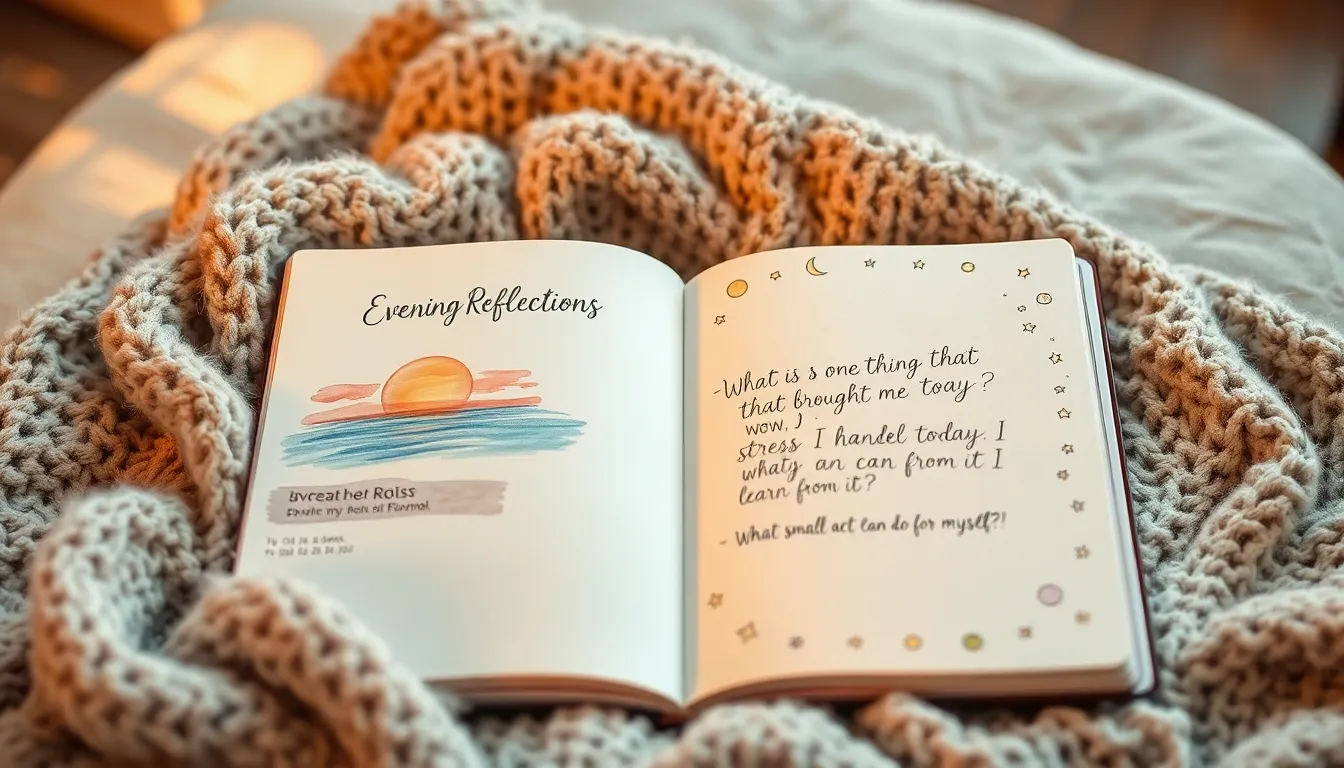 Evening Reflections
Evceat het Rolss
- What is s one thing that
that brought me toay?
wow, J
stress I handel today. I
whaty an can from it I
learn from it?
- What small act Can do for myself?!